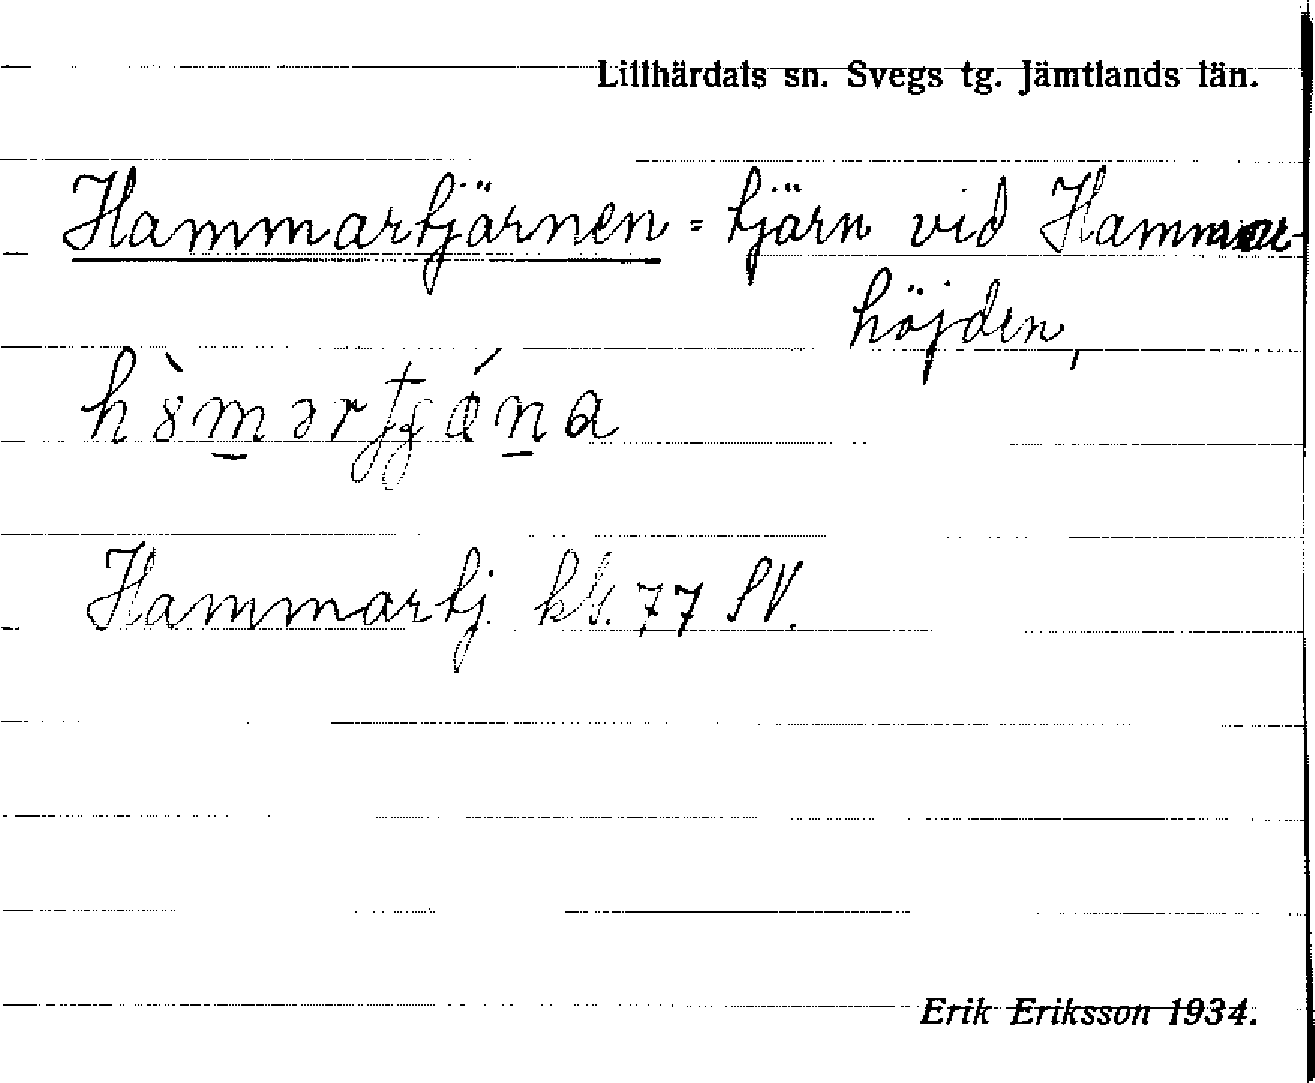 Lillhärdals sn. Svegs tg. Jämtlands län.
Hammartjärnen = tjärn vid Hammar-
höjden,
Hammartj. kb. 77 SV.
Erik Eriksson 1934.